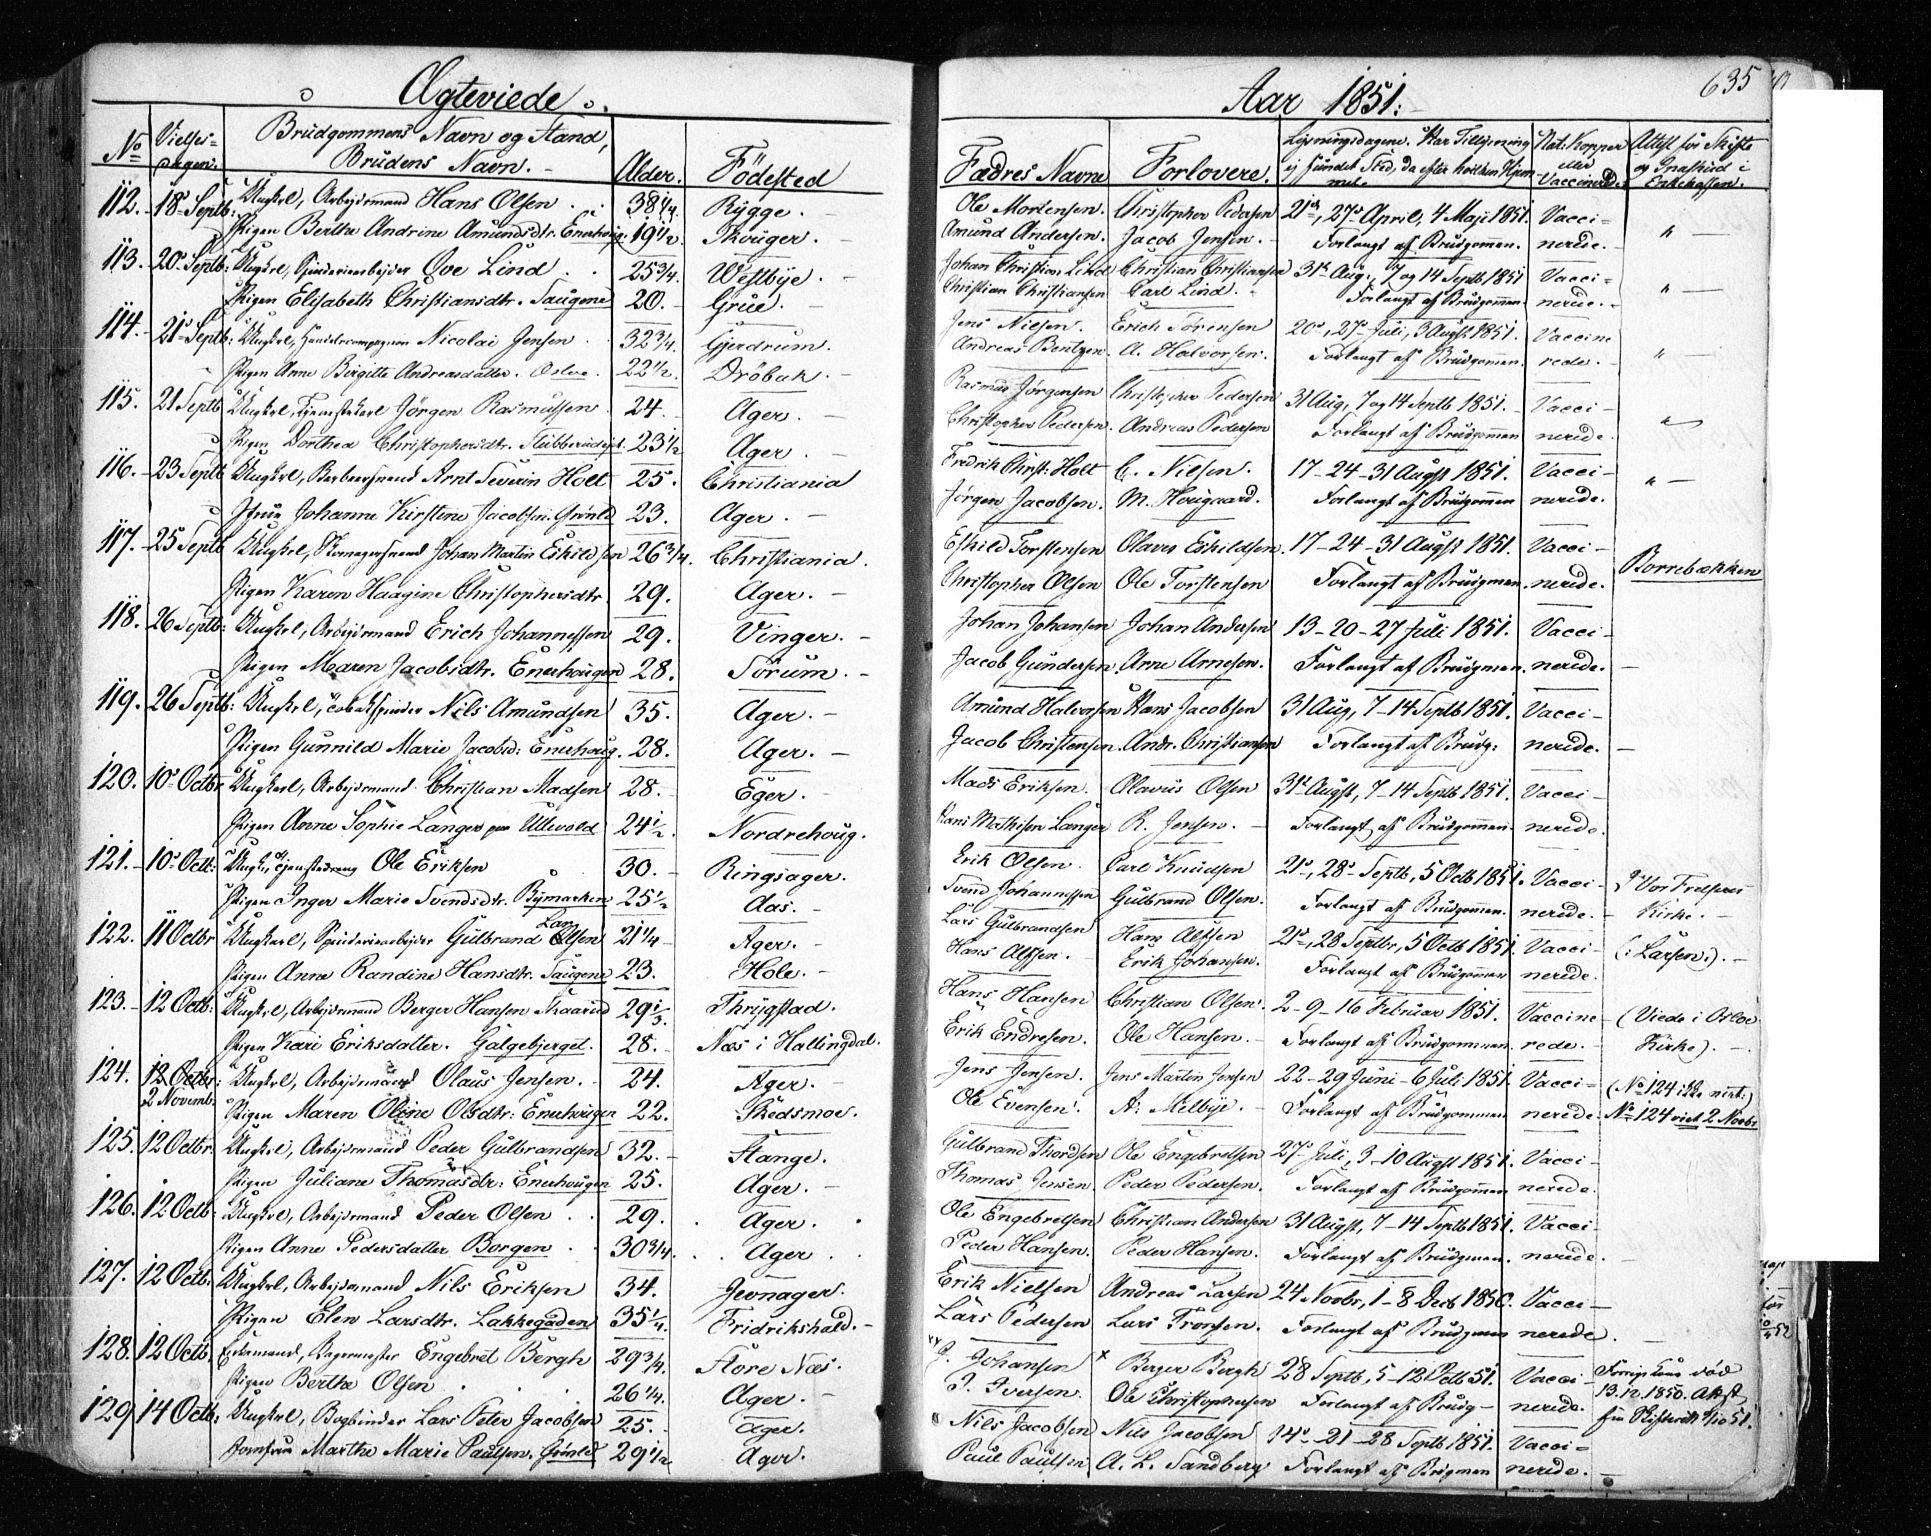 Ægteviede
Aar 1851.
635
No
Vielses-
dagen.
Brudgommens Navn og Stand,
Brudens Navn.
Alder.
Födested
Fædres Navne
Forlovere.
Lysningsdagene. Har Tillysning
ej fundet Sted, da efter hvilken Hjem-
mel.
Nat. Kopper
eller
Vaccinerede
Attest for Skifte
og Indskud i
Enkekassen.
112. 18de Septb: Ungkrl, Arbejdsmand Hans Olsen 38 1/4. Rygge. Ole Mortensen. Christopher Pedersen 21de, 27de April, 4 Maji 1851. Vacci-
Pigen Berthe Andrine Amundsdtr. Enerhoug. 19 1/2 Thruger. Amund Andersen. Jacob Jensen. Forlangt af Brudgommen. nerede. "
113. 20de Septb: Ungkrl, Spinderiearbejder Ove Lind 25 3/4. Westbye. Johan Christian Lind Christian Christiansen 31te Aug. 7 og 14 Septb 1851 Vacci-
Pigen Elisabeth Christiansdtr. Saugene 20. Grue. Christian Christiansen Carl Lind. Forlangt af Brudgommen nerede. "
114. 21de Septb: Ungkrl, Handelscompagnon Nicolai Jensen 32 3/4. Gjerdrum. Jens Nielsen. Erich Sørensen 20de, 27de Juli, 3 Augst 1851. Vaccine
Pigen Anne Birgitte Andreasdatter. Oslve. 22 1/2. Dröbak. Andreas Bentzen. A. Halvorsen. Forlangt af Brudgommen. rede. "
115. 21 Septb Ungkrl, Tjenestekarl Jörgen Rasmussen 24. Ager. Rasmus Jørgensen Christopher Pedersen 31 Aug, 7 og 14 Septb 1851. Vacci-
Pigen Dorthea Christophersdtr. 23 1/2 Ager. Christopher Pedersen. Andreas Pedersen Forlangt af Brudgommen nerede. "
116. 23 Septb Ungkrl, Barbeersvend Arnt Severin Holt 25. Christiania Fredrik Christ: Holt C. Nilsen. 17-24-31 Augst 1851. Vacci-
Jfrue Johanne Kirstine Jacobsen. Grönld 23. Ager. Jörgen Jacobsen. M. Hougaard. Forlangt af Brudgommen nerede. "
117. 25 Septb Ungkrl, Skomagersvend Johan Martin Eskildsen 26 3/4. Christiania. Eskild Torstensen Olaves Eskildsen. 17-24-31 Augst 1851. Vacci- Borrebækken
Pigen Karen Haagine Christophersdtr. 29. Ager. Christopher Olsen Ole Torstensen Forlangt af Brudgmen. nerede.
118. 26 Septb: Ungkrl, Arbejdsmand Erich Johannessen 29. Vinger. Johan Johansen Johan Andersen 13-20-27 Juli 1851. Vacci-
Pigen Maren Jacobsdtr. Enerhougen 28. Sörum. Jacob Gundersen. Arne Arnesen. Forlangt af Brudgmen. nerede.
119. 26 Septb: Ungkrl, Tobakspinder Nils Amundsen 35. Ager. Amund Halvorsen Hans Jacobsen 31 Aug, 7-14 Septb 1851. Vacci-
Pigen Gunnild Marie Jacobsd: Enerhoug. 28. Ager. Jacob Christensen. Andr. Christiansen Forlangt af Brudg: nerede.
120. 10de Octbr Ungkarl, Arbejdsmand Christian Madsen 28. Eger. Mads Eriksen. Olavus Olsen 31te Augst, 7-14 Septb 1851. Vacci-
Pigen Anne Sophie Langer paa Ullevold 24 1/2. Nordrehoug. Hans Mathisen Langer R. Jensen. Forlangt af Brudgommen. nerede.
121. 10de Octb: Ungk, Tjenestedreng Ole Eriksen 30. Ringsager. Erik Olsen. Carl Knudsen 21de, 28de Septb, 5 Octb 1851. Vacci- I Vor Frelsers
Pigen Inger Marie Svendsdtr. Bymarken 25 1/2 Aas. Svend Johannessen Gulbrand Olsen. Forlangt af Brudgommen. nerede. Kirke.
122. 11 Octbr Ungkarl, Spinderiearbejder Gulbrand Olsen Lar 21 1/4 Ager. Lars Gulbrandsen Hans Alfsen 21de, 28 Septbr, 5 Octb 1851. Vacci- (: Larsen:).
Pigen Anne Randine Hansdtr. Saugene 23. Hole. Hans Alfsen. Erik Johansen. Forlangt af Brudgommen nerede.
123. 12 Octb: Ungkrl, Arbejdsmand Berger Hansen Skaarud 29 1/3. Thrygstad. Hans Hansen Christian Olsen. 2-9-16 Februar 1851. Vaccine- (Viede i Osloe
Pigen Kari Eriksdatter. Galgebjerget. 28. Næs i Hallingdal. Erik Endresen. Ole Hansen. Forlangt af Brudgommen. rede. Kirke).
124. 12 Octbr: 2 Novemb: Ungkrl, Arbejdsmand Olaus Jensen. 24. Ager. Jens Jensen. Jens Martin Jensen 22-29 Juni-6 Juli 1851. Vacci- (No 124 ikke viet:)
Pigen Maren Oline Olsdtr: Enerhougen 22. Skedsmoe. Ole Evensen. A. Melbye. Forlangt af Brudgommen nerede. No 124 viet 2 Novbr
125. 12 Octbr: Ungkrl, Arbejdsmand Peder Gulbrandsen 32. Stange. Gulbrand Thordsen Ole Engebretsen 27de Juli, 3-10 Augst 1851. Vacci-
Pigen Juliane Thomasdtr: Enerhougen 25. Ager. Thomas Jensen. Peder Pedersen. Forlangt af Brudgommen nerede.
126. 12 Octb: Ungkrl, Arbejdsmand Peder Olsen 29. Ager. Ole Engebretsen Christian Andersen 31 Augst, 7-14 Septb 1851. Vacci-
Pigen Anne Pedersdatter Borgen 30 3/4. Ager. Peder Hansen. Peder Hansen. Forlangt af Brudgmen. nerede.
127. 12 Octb: Ungkrl, Arbejdsmand Nils Eriksen 34. Jevnager. Erik Nielsen Andreas Larsen 24 Novbr, 1-8 Decb 1850. Vacci-
Pigen Elen Larsdtr. Lakkegaden 35 1/4. Fridrikshald. Lars Pedersen Lars Tronsen. Forlangt af Brudgmen nerede.
128. 12 Octb. Enkemand, Bagermester Engebret Bergh 29 3/4. Store Næs. J. Johansen Berger Bergh 28 Septb, 5-12 Octb 51. Vacci- Forrige Kone död
Pigen Berthe Olsen 26 1/4. Ager. P. Iversen. Ole Christophersen Forlangt af Brudg- nerede. 13.12.1850. Attst
129 14 Octb: Ungkrl, Bogbinder Lars Peter Jacobsen 25. Ager. Nils Jacobsen Nils Jacobsen 14de-21-28 Septb 1851. Vacci- fra Skifterett /10 51.
Jomfrue Martha Marie Paulsen. Grönld 29 1/2 Ager. Paul Paulsen A. L. Sandberg Forlangt af Brdgmen nerede.